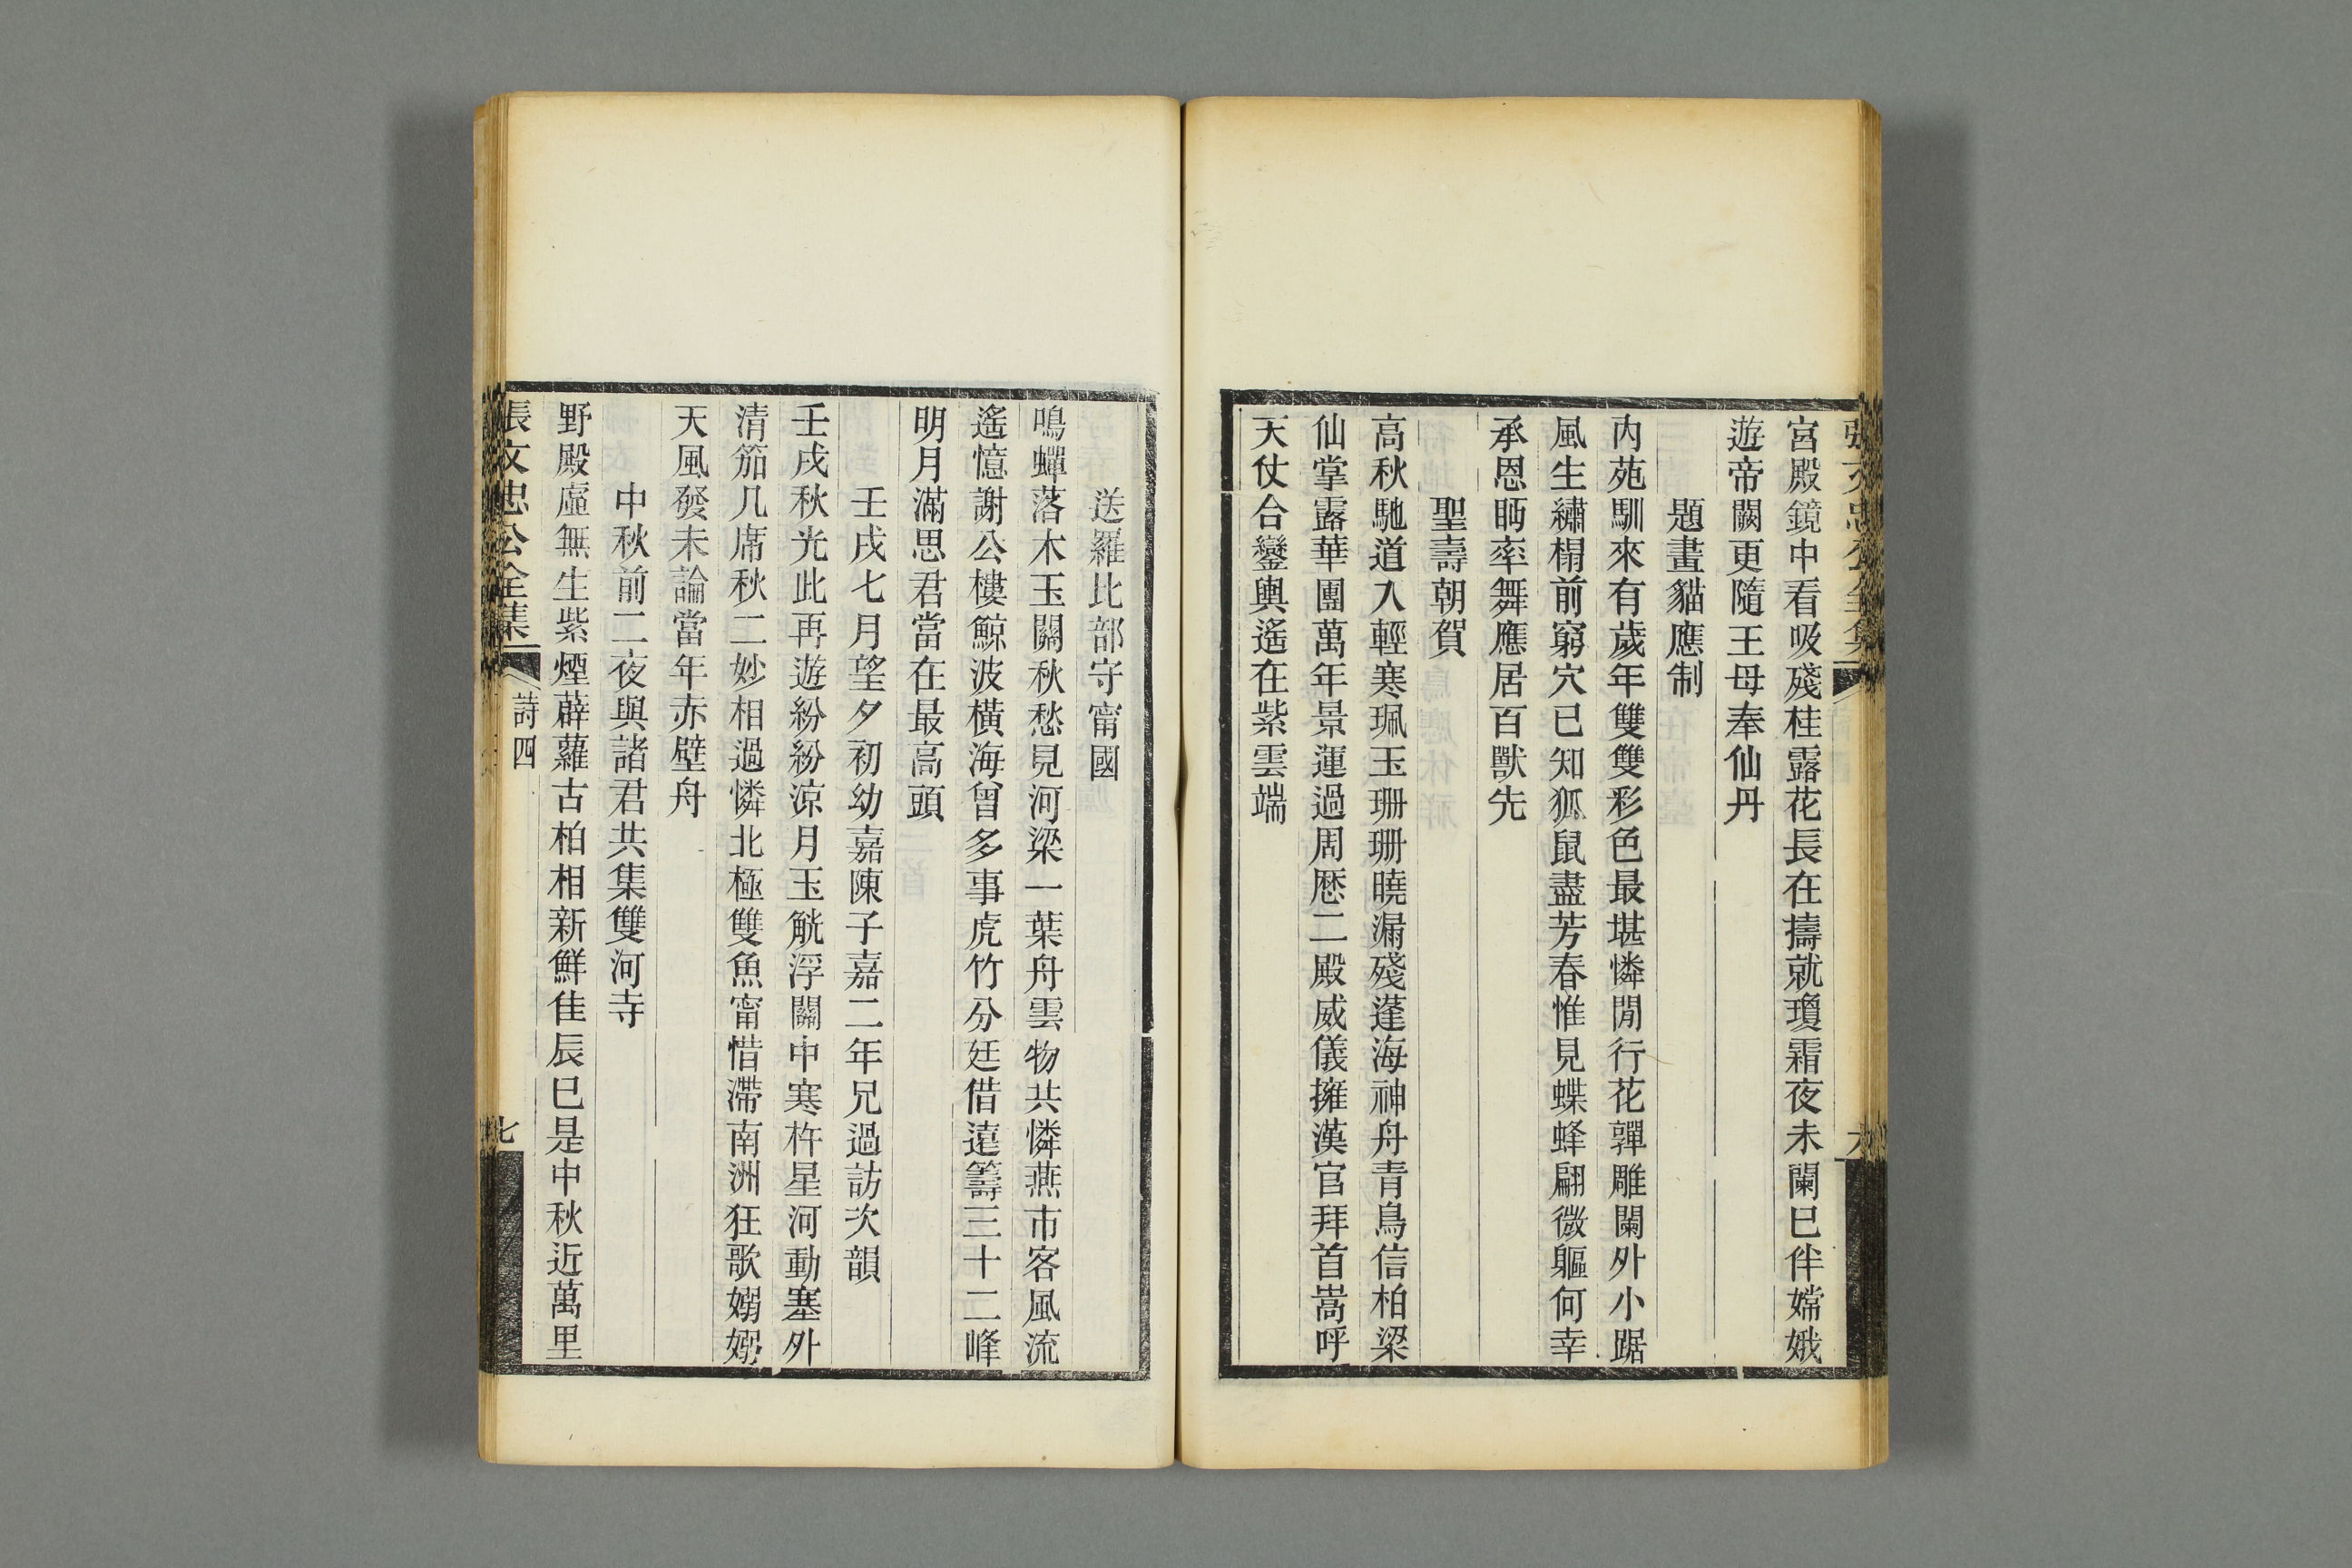 宮殿鏡中看吸殘桂露花長在擣就瓊霜夜未闌巳伴嫦娥
遊帝闕更隨王母奉仙丹
題畫貓應制
內苑馴來有歲年雙雙彩色最堪憐閒行花嚲雕闌外小踞
風生繡榻前窮穴已知狐鼠盡芳春惟見蝶蜂翩微軀何幸
承恩眄率舞應居百獸先
聖壽朝賀
高秋馳道入輕寒珮玉珊珊曉漏殘蓬海神舟青鳥信柏梁
仙掌露華團萬年景運過周歷二殿威儀擁漢官拜首嵩呼
天仗合鑾輿遙在紫雲端
送羅比部守甯國
鳴蟬落木玉關秋愁見河梁一葉舟雲物共憐燕市客風流
遙憶謝公樓鯨波橫海曾多事虎竹分廷借遠籌三十二峰
明月滿思君當在最高頭
壬戌七月望夕初幼嘉陳子嘉二年兄過訪次韻
壬戌秋光此再遊紛紛涼月玉觥浮關中寒杵星河動塞外
清笳几席秋二妙相過憐北極雙魚甯惜滯南洲狂歌嫋嫋
天風發未論當年赤壁舟
中秋前二夜與諸君共集雙河寺
野殿虛無生紫煙薜蘿古柏相新鮮佳辰巳是中秋近萬里
張文忠公全集
詩四
七